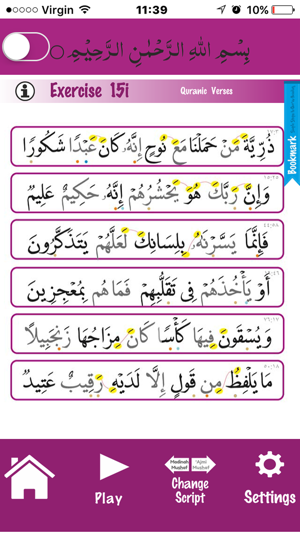 Virgin 11:39 10%
بِسْمِ اللهِ الرَّحْمٰنِ الرَّحِيْمِ
Exercise 15i Quranic Verses
Bookmark
ذُرِّيَّةَ مَنْ حَمَلْنَا مَعَ نُوحٍ إِنَّهُ كَانَ عَبْدًا شَكُورًا
وَإِنَّ رَبَّكَ هُوَ يَحْشُرُهُمْ إِنَّهُ حَكِيمٌ عَلِيمٌ
فَإِنَّمَا يَسَّرْنَهُ بِلِسَانِكَ لَعَلَّهُمْ يَتَذَكَّرُونَ
أَوْ يَأْخُذَهُمْ فِى تَقَلُّبِهِمْ فَمَا هُم بِمُعْجِزِينَ
وَيُسْقَوْنَ فِيهَا كَأْسًا كَانَ مِزَاجُهَا زَنجَبِيلًا
مَا يَلْفِظُ مِن قَوْلٍ إِلَّا لَدَيْهِ رَقِيبٌ عَتِيدٌ
Madinah Mushaf 'Ajmi Mushaf
Play
Change Script
Settings